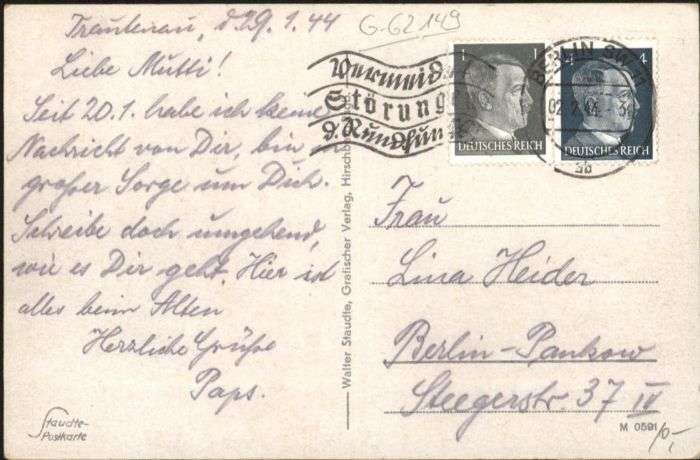 Trautenau, d 29. 1. 44
Liebe Mutti!
Seit 20.1. habe ich keine
Nachricht von Dir, bin
großer Sorge um Dich.
Schreibe doch umgehend,
wie es Dir geht. Hier ist
alles beim Alten
Herzliche Grüße
Paps.
Staudte-
Postkarte
Walter Staudte, Grafischer Verlag, Hirschb
G-G2149
Vermeid
Störung
d. Rundfun
1 1
DEUTSCHES REICH
4
DEUTSCHES REICH
BERLIN SW
Frau
Lina Heider
Berlin-Pankow
Steegerstr. 37 IV
M 0591